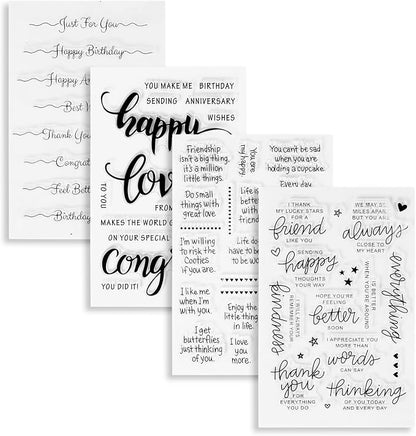 Just For You
Happy Birthday
Happy
Best
Thank You
Congrat
Feel Bett
Birthday
YOU MAKE ME BIRTHDAY
SENDING ANNIVERSARY
WISHES
happy
love
TO YOU
FROM
MAKES THE WORLD G
ON YOUR SPECIAL
Cong
YOU DID IT!
Friendship
isn't a big thing,
it's a million
little things.
You are
my happy.
You can't be sad
when you are
holding a cupcake.
Every day
Do small
things with
great love
Life is
better
with
I'm willing
to risk the
Cooties
if you are.
Life do
have to
to be
wo
I like me
when I'm
with you.
Enjoy the
little things
in life.
I get
butterflies
just thinking
of you.
I love
you
more.
I THANK
MY LUCKY STARS
FOR A
friend
LIKE YOU
WE MAY BE
MILES APART,
BUT YOU ARE
always
CLOSE TO
MY HEART
SENDING
happy
THOUGHTS
YOUR WAY
everything
IS BETTER
WHEN YOU'RE AROUND
I WILL ALWAYS
REMEMBER YOUR
kindness
HOPE YOU'RE
FEELING
better
SOON
I APPRECIATE YOU
MORE THAN
words
CAN SAY
thank
you
FOR
EVERYTHING
YOU DO
thinking
OF YOU TODAY
AND EVERY DAY